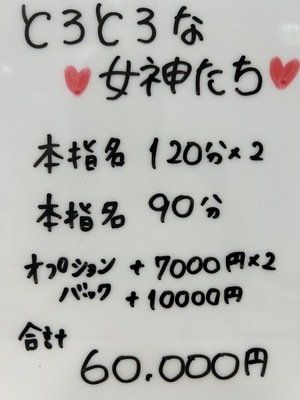 とろとろな
♥女神たち♥
本指名 120分×2
本指名 90分
オプション +7000円×2
バック +10000円
合計
60.000円